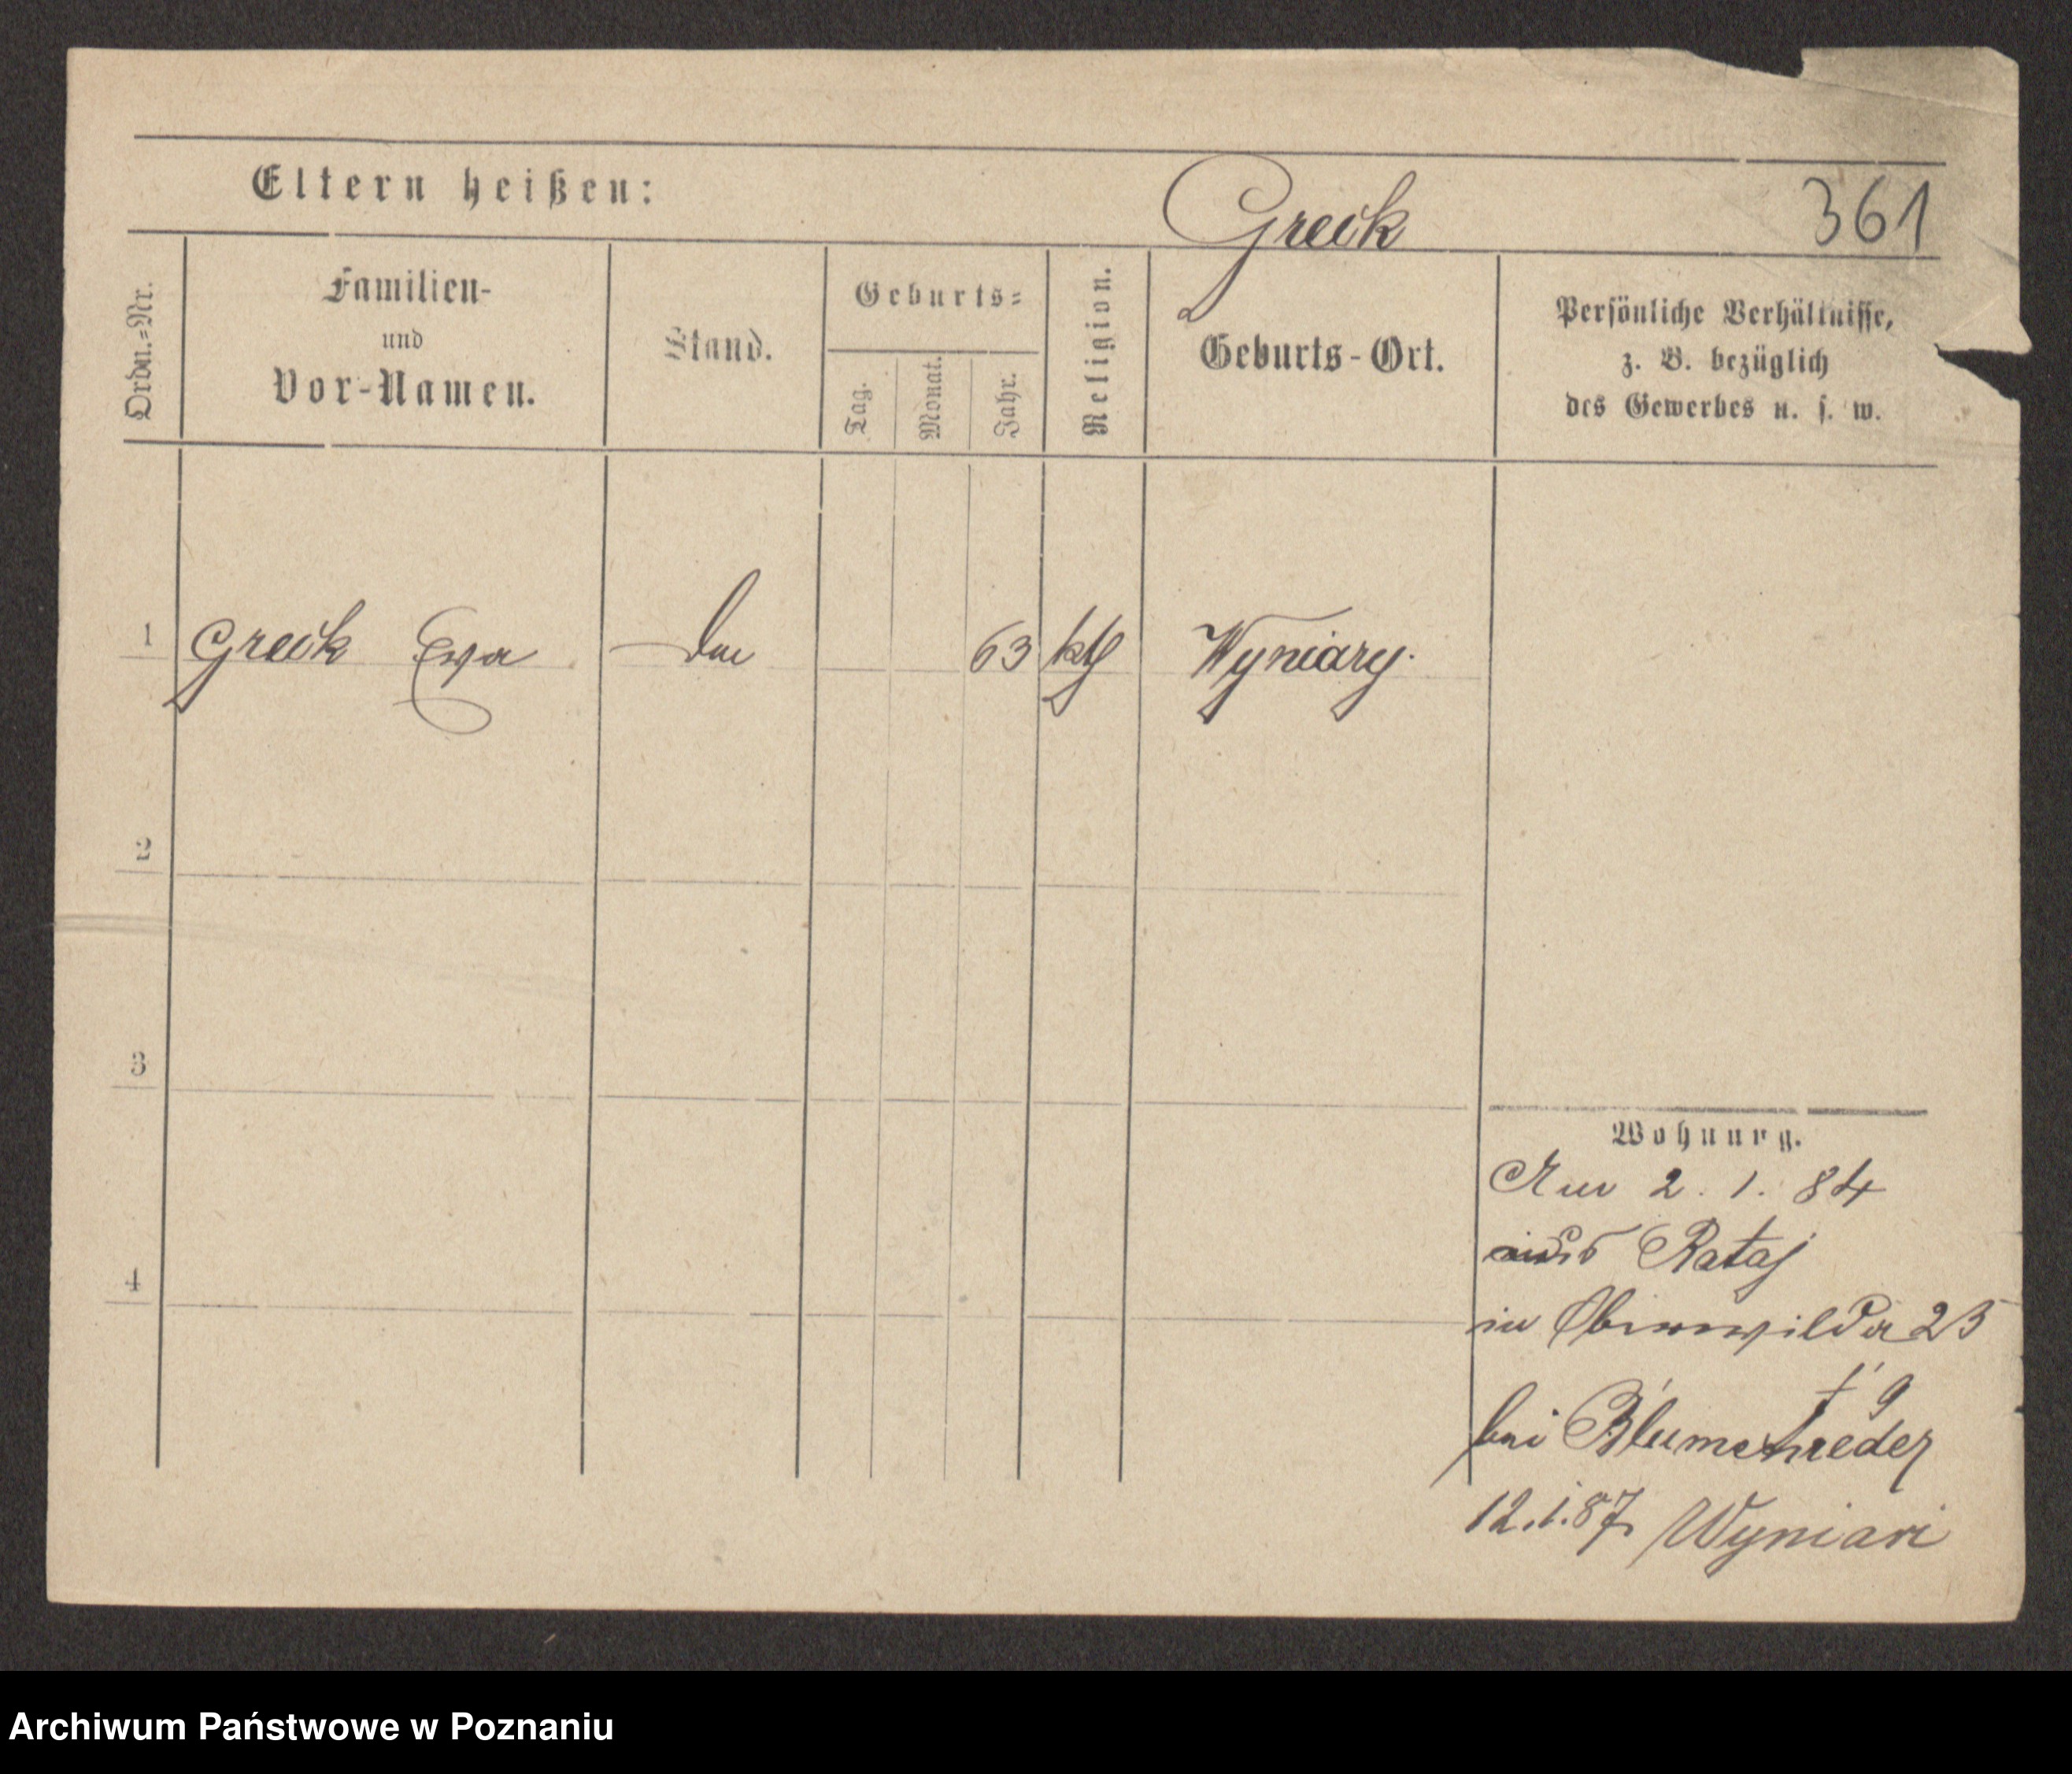 Eltern heißen:
Greck
361
Ordn.=Nr.
Familien-
und
Vor-Namen.
Stand.
Geburts=
Tag.
Monat.
Jahr.
Religion.
Geburts-Ort.
Persönliche Verhältnisse,
z. B. bezüglich
des Gewerbes u. s. w.
1 Greck Ewa 63 kth Wyniary.
2
3
4
Wohnung.
2. 1. 84
aus Rataj
in Oberwilda 23
bei
12.1.87. Wyniari
Archiwum Państwowe w Poznaniu